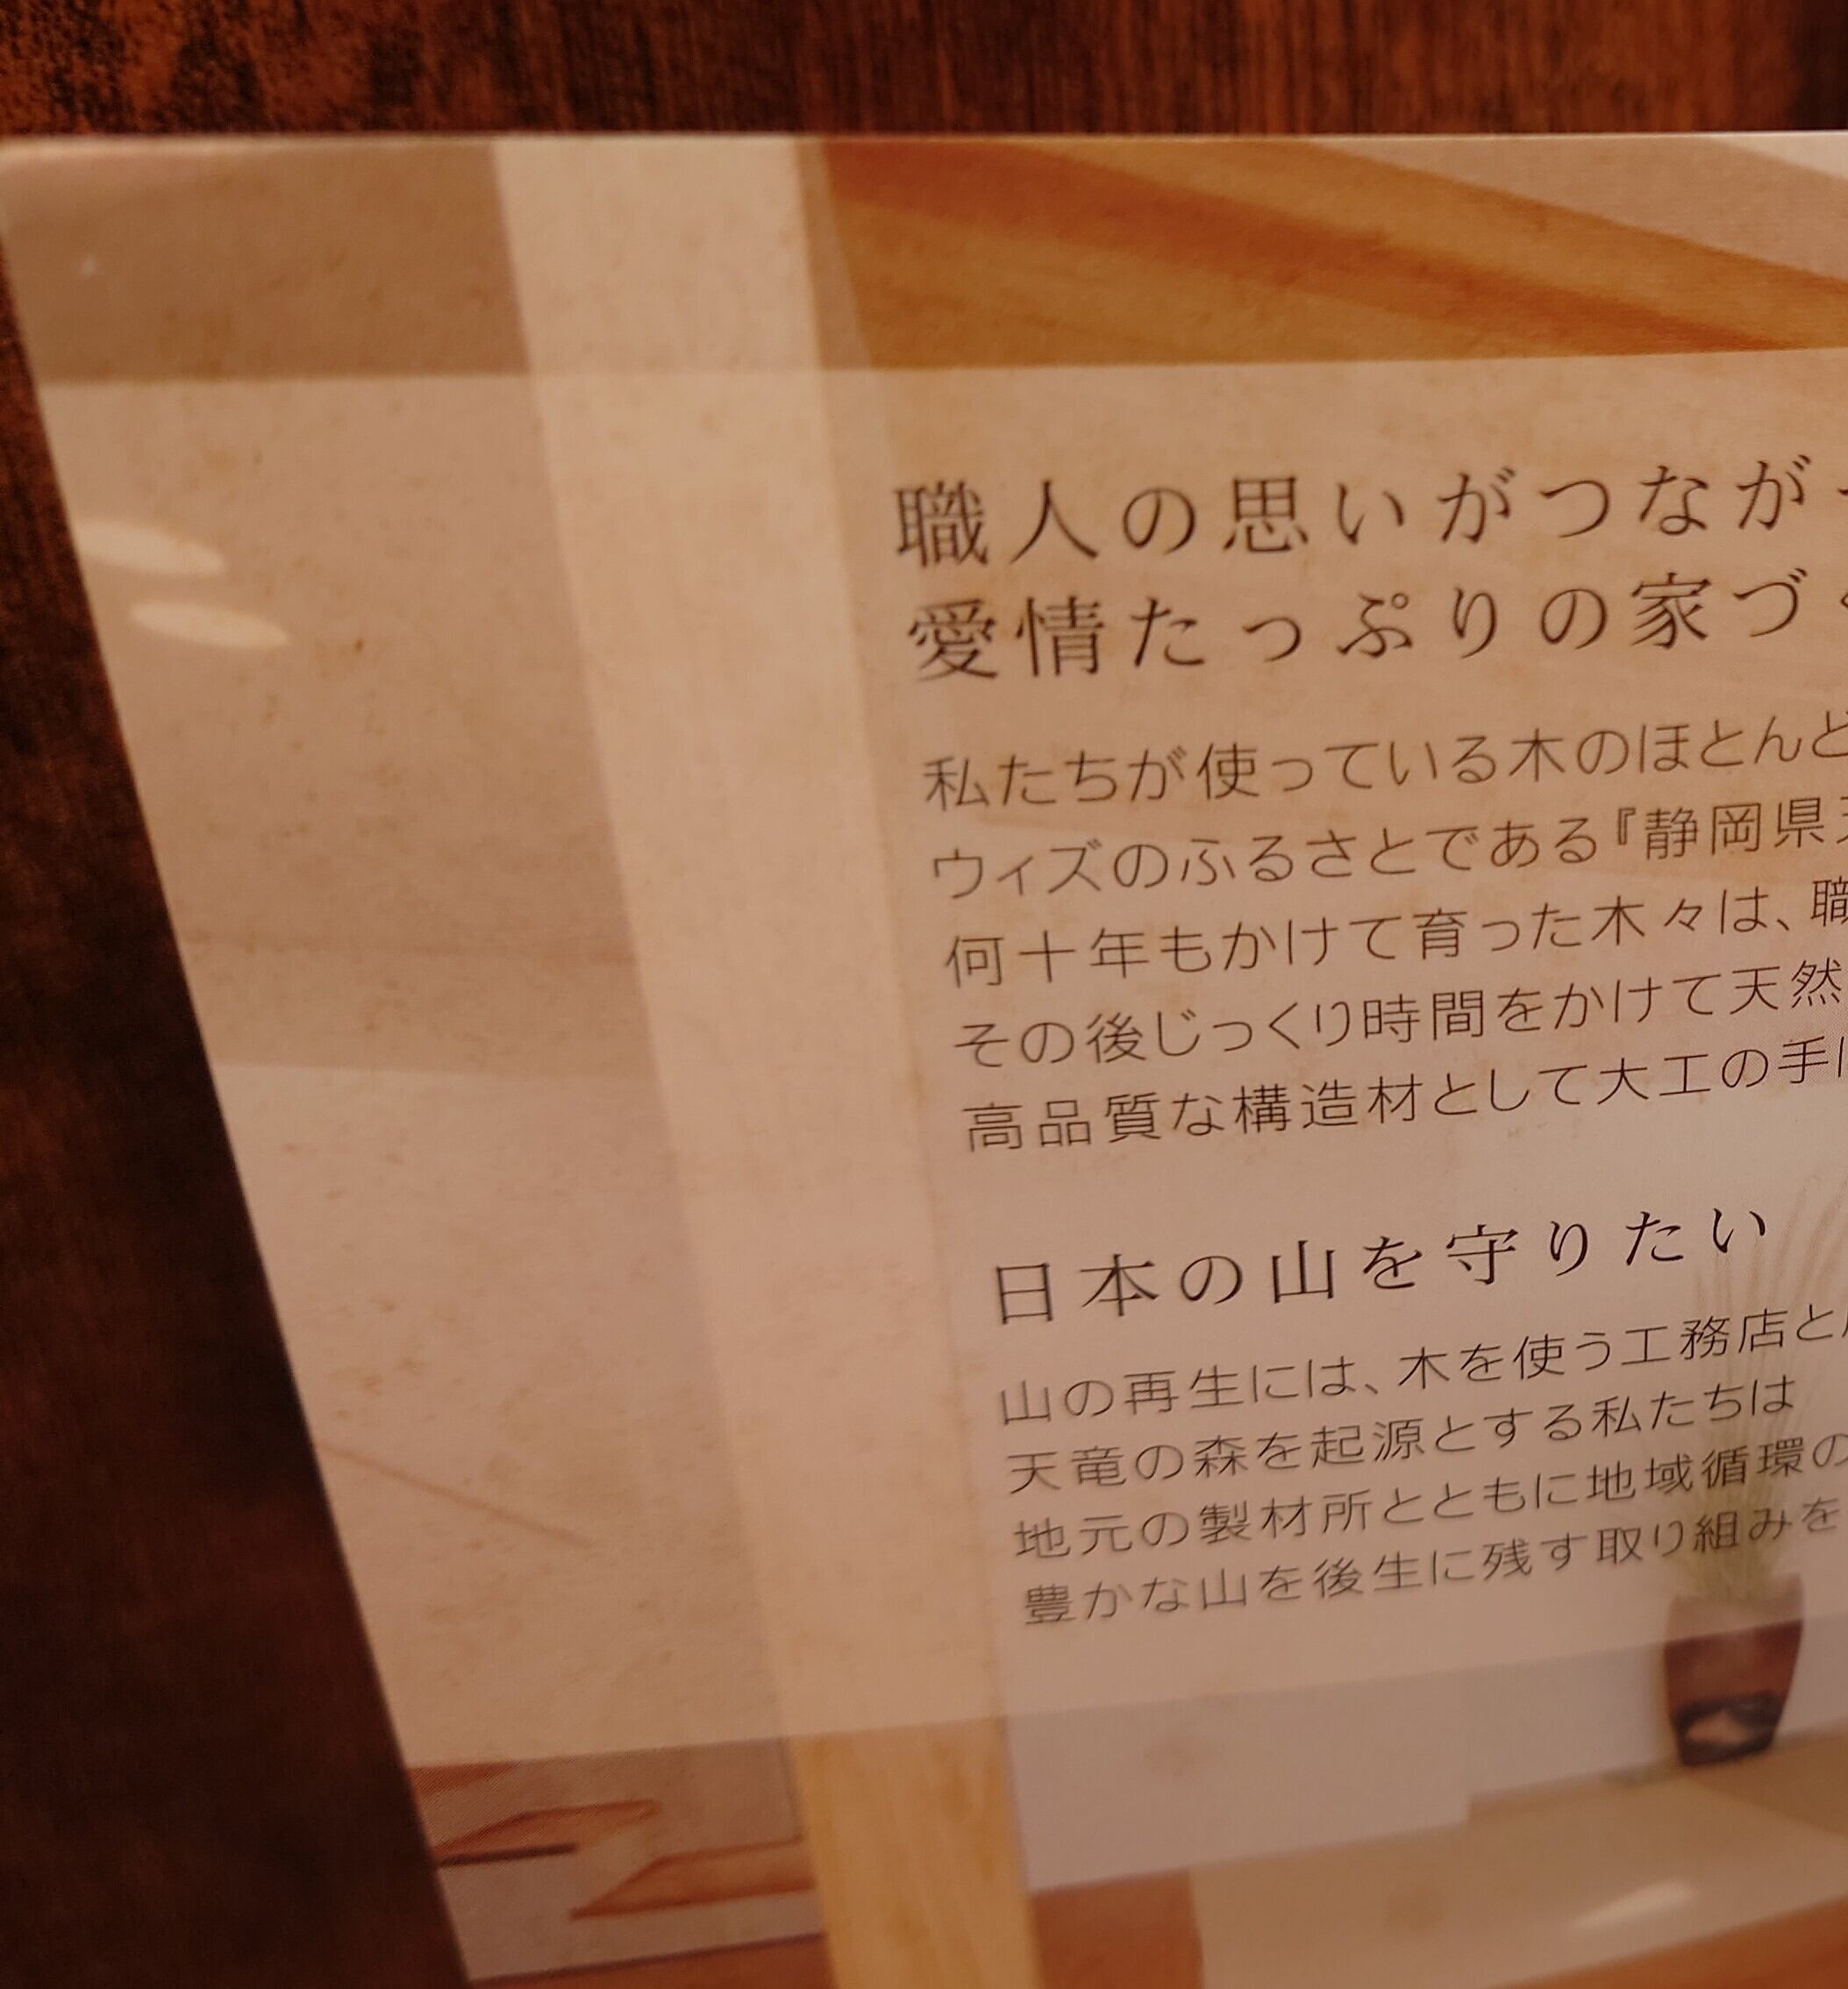 職人の思いがつなが
愛情たっぷりの家づ
私たちが使っている木のほとんど
ウィズのふるさとである『静岡県
何十年もかけて育った木々は、職
その後じっくり時間をかけて天然
高品質な構造材として大工の手
日本の山を守りたい
山の再生には、木を使う工務店と
天竜の森を起源とする私たちは
地元の製材所とともに地域循環の
豊かな山を後生に残す取り組みを